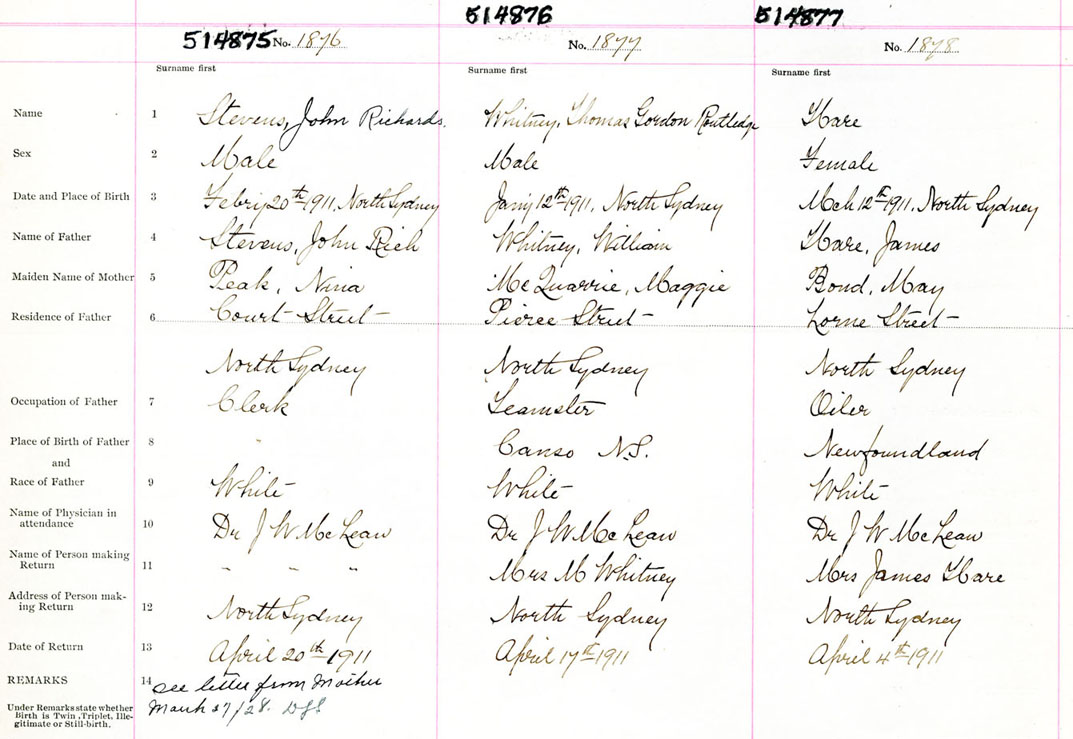 514875 No. 1876 514876 No. 1877 514877 No. 1878
Surname first Surname first Surname first
Name 1 Stevens, John Richards. Whitney, Thomas Gordon Routledge Hare
Sex 2 Male Male Female
Date and Place of Birth 3 Febry 20th 1911, North Sydney Jany 12th 1911, North Sydney Mch 12th 1911, North Sydney
Name of Father 4 Stevens, John Rich Whitney, William Hare, James
Maiden Name of Mother 5 Peak, Nina McQuarrie, Maggie Bond, May
Residence of Father 6 Court Street Pierce Street Lorne Street
North Sydney North Sydney North Sydney
Occupation of Father 7 Clerk Teamster Oiler
Place of Birth of Father 8 " Canso N.S. Newfoundland
and
Race of Father 9 White White White
Name of Physician in
attendance 10 Dr J W McLean Dr J W McLean Dr J W McLean
Name of Person making
Return 11 " " " Mrs M Whitney Mrs James Hare
Address of Person mak-
ing Return 12 North Sydney North Sydney North Sydney
Date of Return 13 April 20th 1911 April 17th 1911 April 4th 1911
REMARKS 14 see letter from Mother
Under Remarks state whether March 27/28.
Birth is Twin, Triplet, Ille-
gitimate or Still-birth.